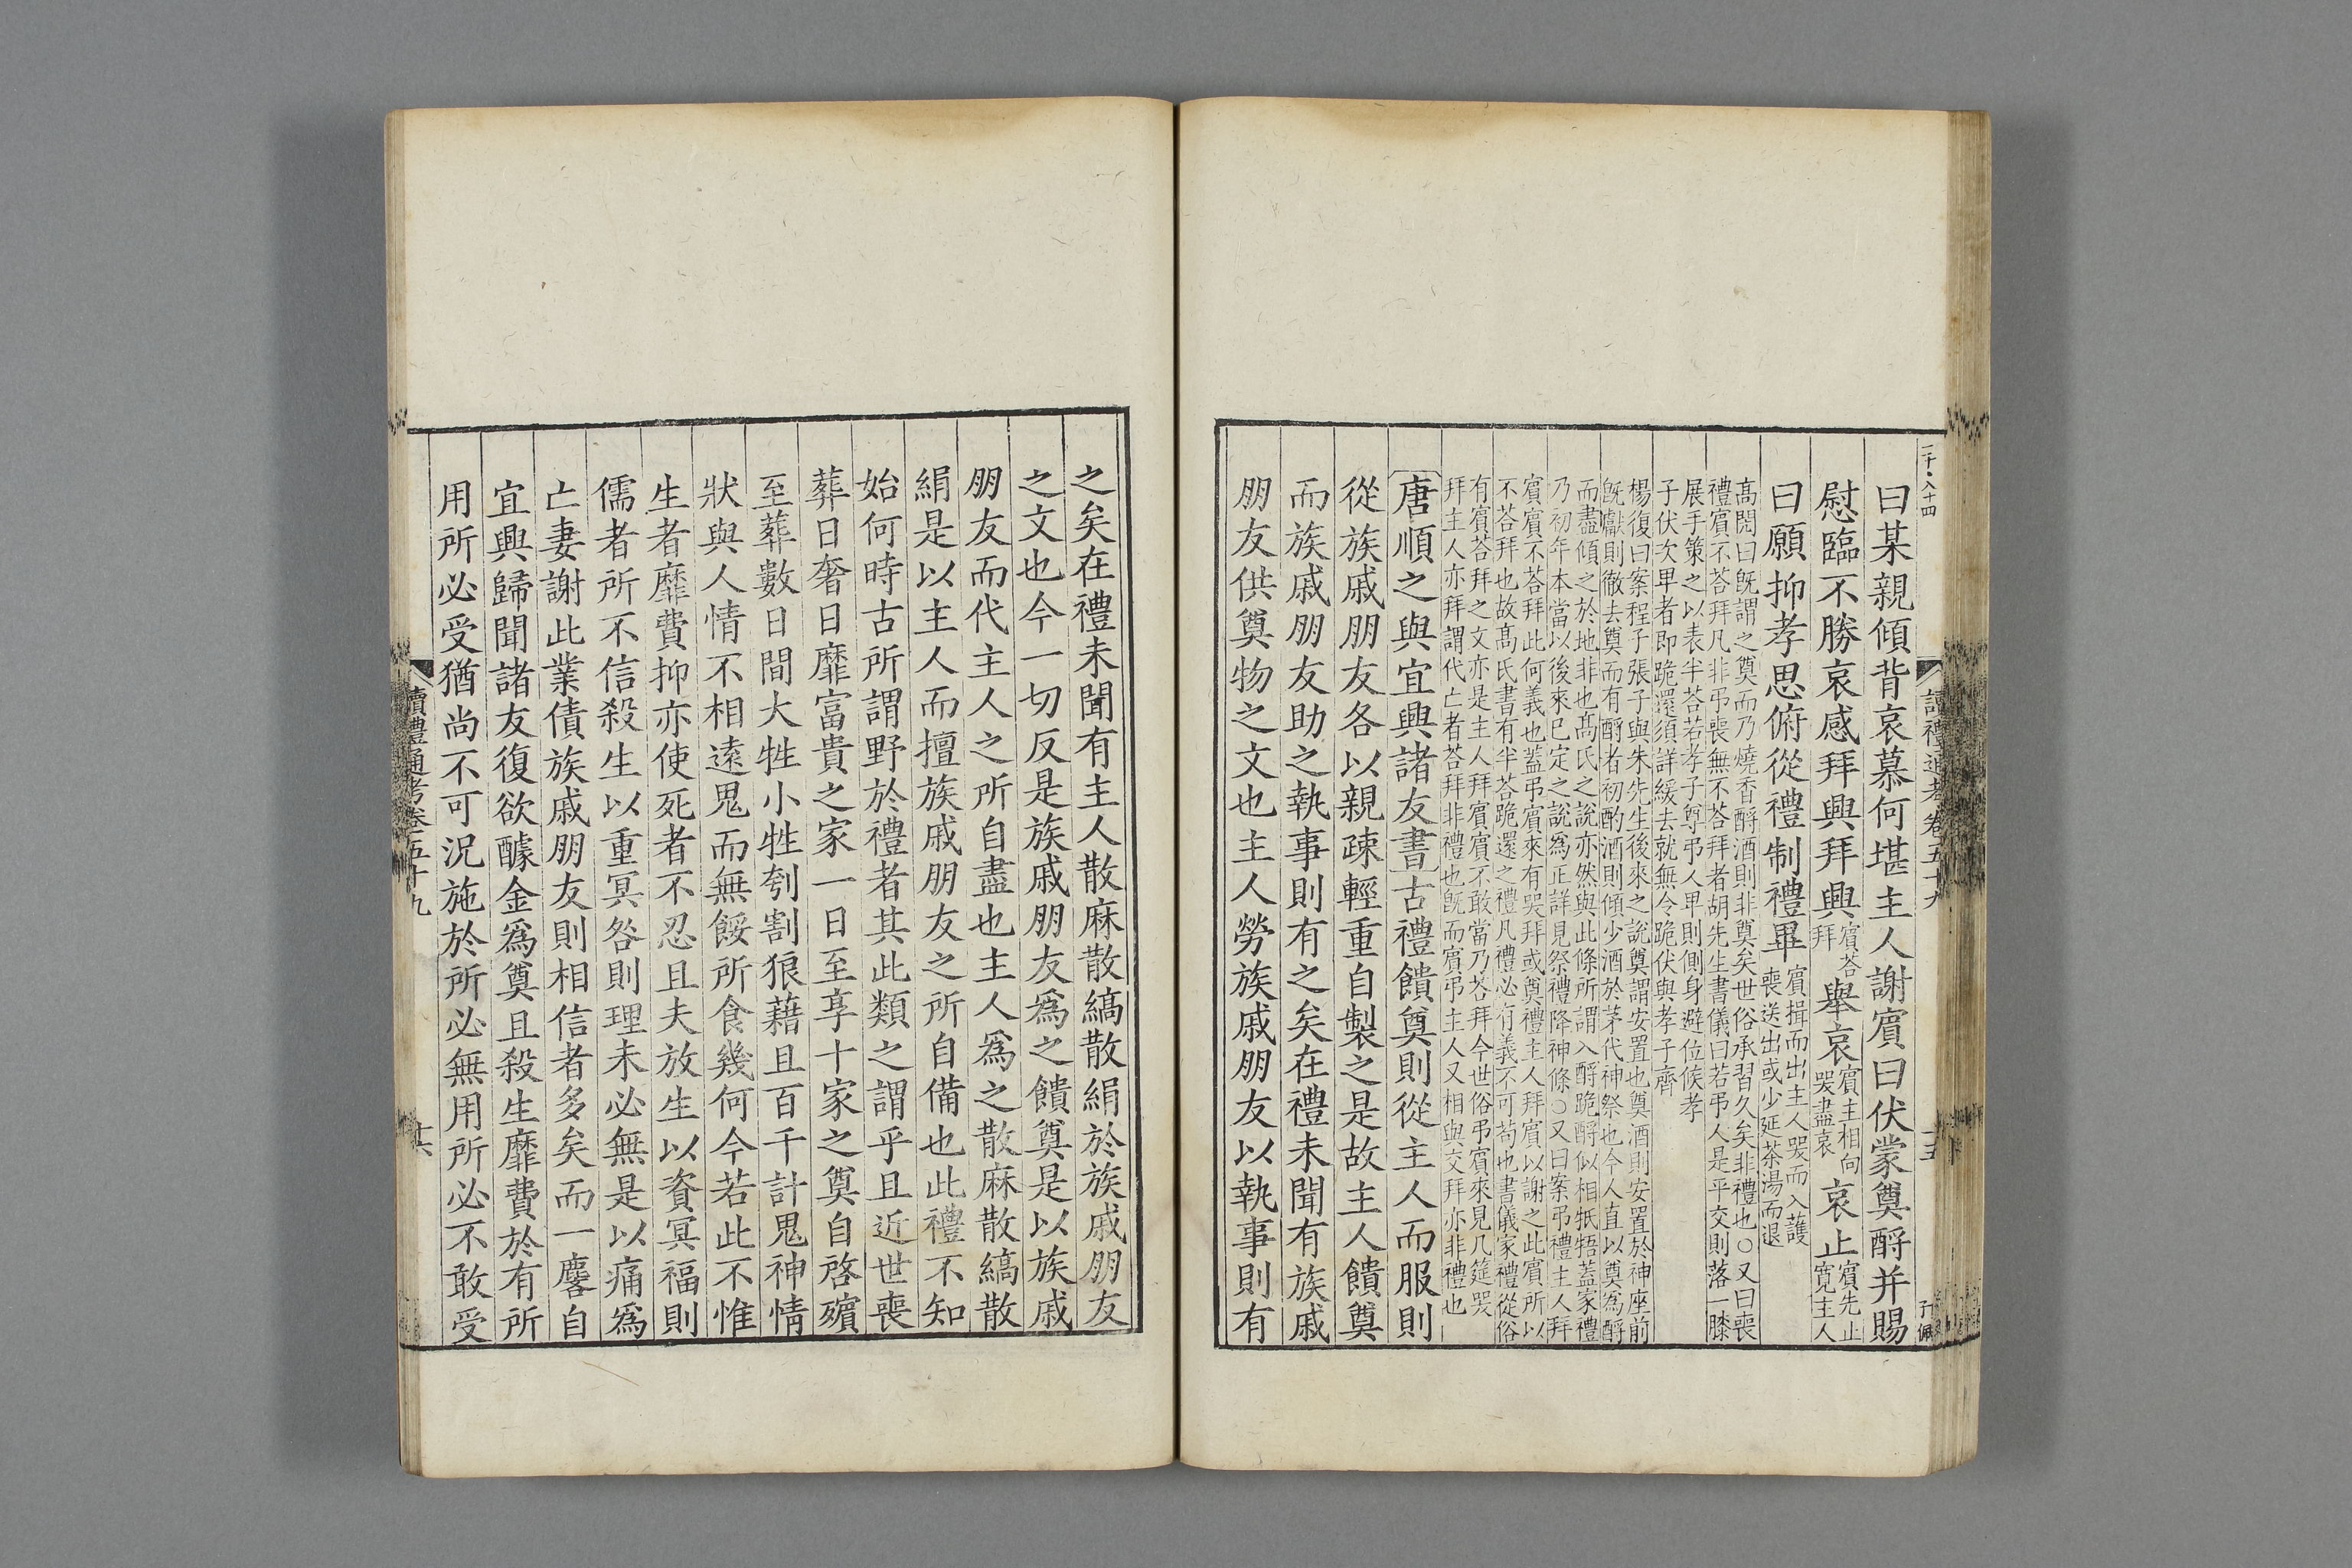 讀禮通考卷五十九
曰某親傾背哀慕何堪主人謝賔曰伏蒙奠酹并賜
慰臨不勝哀感拜興拜興賔荅拜舉哀賔主相向哭盡哀哀止賔先止寛主人
曰願抑孝思俯從禮制禮畢賔揖而出主人哭而入護喪送出或少延茶湯而退
髙閌曰旣謂之奠而乃燒香酹酒則非奠矣世俗承習久矣非禮也○又曰喪
禮賔不荅拜凡非弔喪無不荅拜者胡先生書儀曰若弔人是平交則落一膝
展手策之以表半荅若孝子尊弔人卑則側身避位候孝
子伏次卑者即跪還須詳緩去就無令跪伏與孝子齊
楊復曰案程子張子與朱先生後來之說奠謂安置也奠酒則安置於神座前
旣獻則徹去奠而有酹者初酌酒則傾少酒於茅代神祭也今人直以奠為酹
而盡傾之於地非也髙氏之說亦然與此條所謂入酹跪酹似相牴牾蓋家禮
乃初年本當以後來已定之說為正詳見祭禮降神條○又曰案弔禮主人拜
賔賔不荅拜此何義也蓋弔賔來有哭拜或奠禮主人拜賔以謝之此賔所以
不荅拜也故髙氏書有半荅跪還之禮凡禮必有義不可苟也書儀家禮從俗
有賔荅拜之文亦是主人拜賔賔不敢當乃荅拜今世俗弔賔來見几筵哭
拜主人亦拜謂代亡者荅拜非禮也旣而賔弔主人又相與交拜亦非禮也
唐順之與宜興諸友書古禮饋奠則從主人而服則
從族戚朋友各以親疎輕重自製之是故主人饋奠
而族戚朋友助之執事則有之矣在禮未聞有族戚
朋友供奠物之文也主人勞族戚朋友以執事則有
之矣在禮未聞有主人散麻散縞散絹於族戚朋友
之文也今一切反是族戚朋友爲之饋奠是以族戚
朋友而代主人之所自盡也主人爲之散麻散縞散
絹是以主人而擅族戚朋友之所自備也此禮不知
始何時古所謂野於禮者其此類之謂乎且近世喪
葬日奢日靡富貴之家一日至享十家之奠自啓殯
至葬數日間大牲小牲刳割狼藉且百千計鬼神情
狀與人情不相遠鬼而無餒所食幾何今若此不惟
生者靡費抑亦使死者不忍且夫放生以資冥福則
儒者所不信殺生以重冥咎則理未必無是以痛爲
亡妻謝此業債族戚朋友則相信者多矣而一麐自
宜興歸聞諸友復欲醵金爲奠且殺生靡費於有所
用所必受猶尚不可況施於所必無用所必不敢受
讀禮通考卷五十九